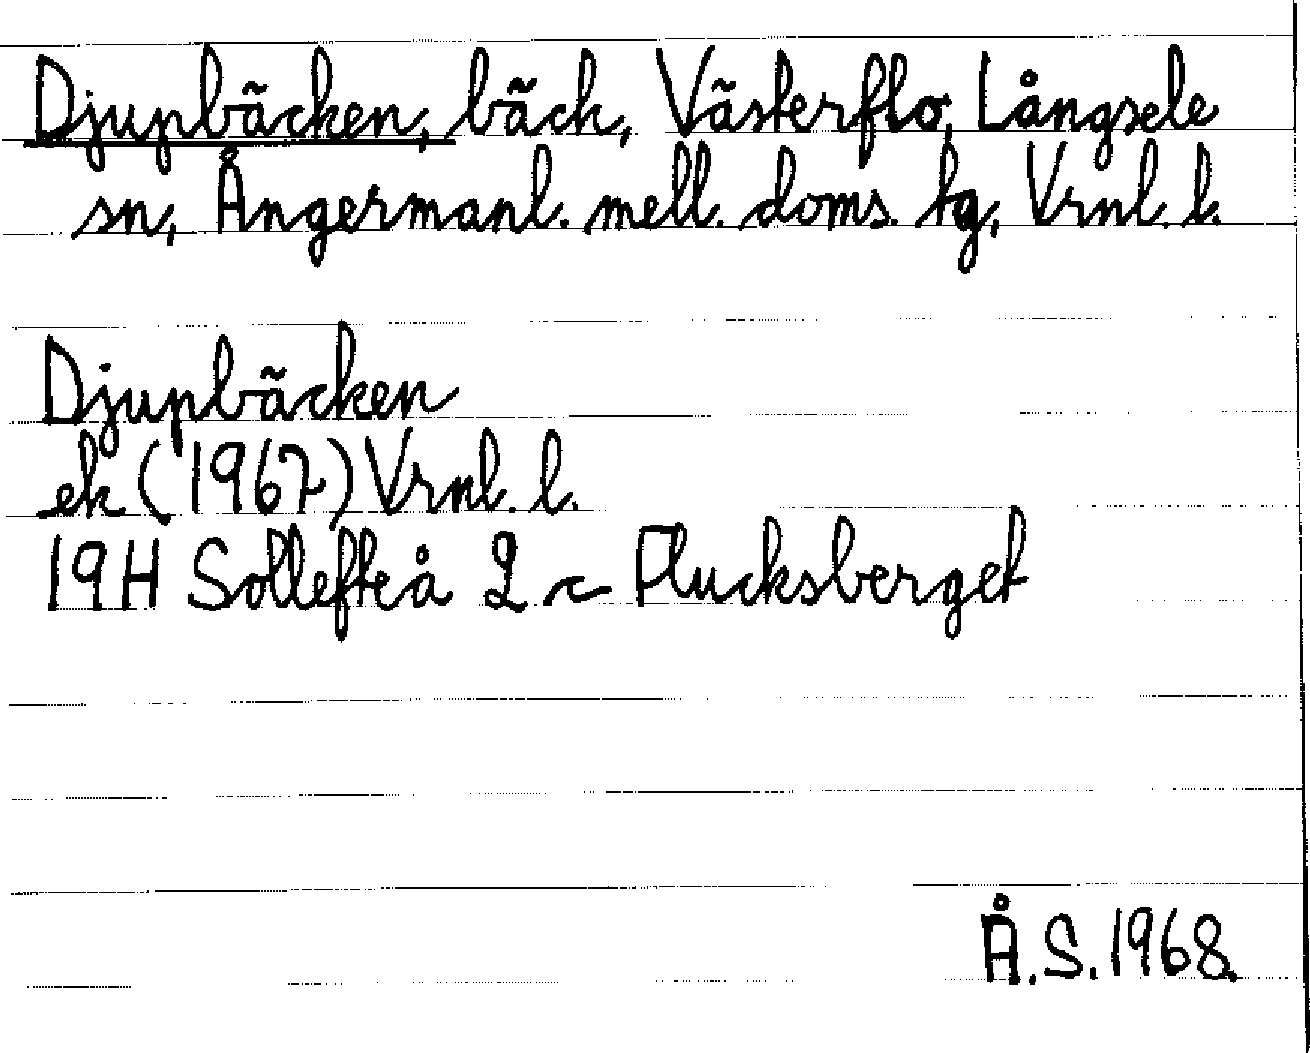 Djupbäcken, bäck, Västerflo, Långsele
sn, Ångermanl. mell. doms. tg, Vrnl. l.
Djupbäcken
ek (1967) Vrnl. l.
19H Sollefteå 2 c Flucksberget
Å.S. 1968.